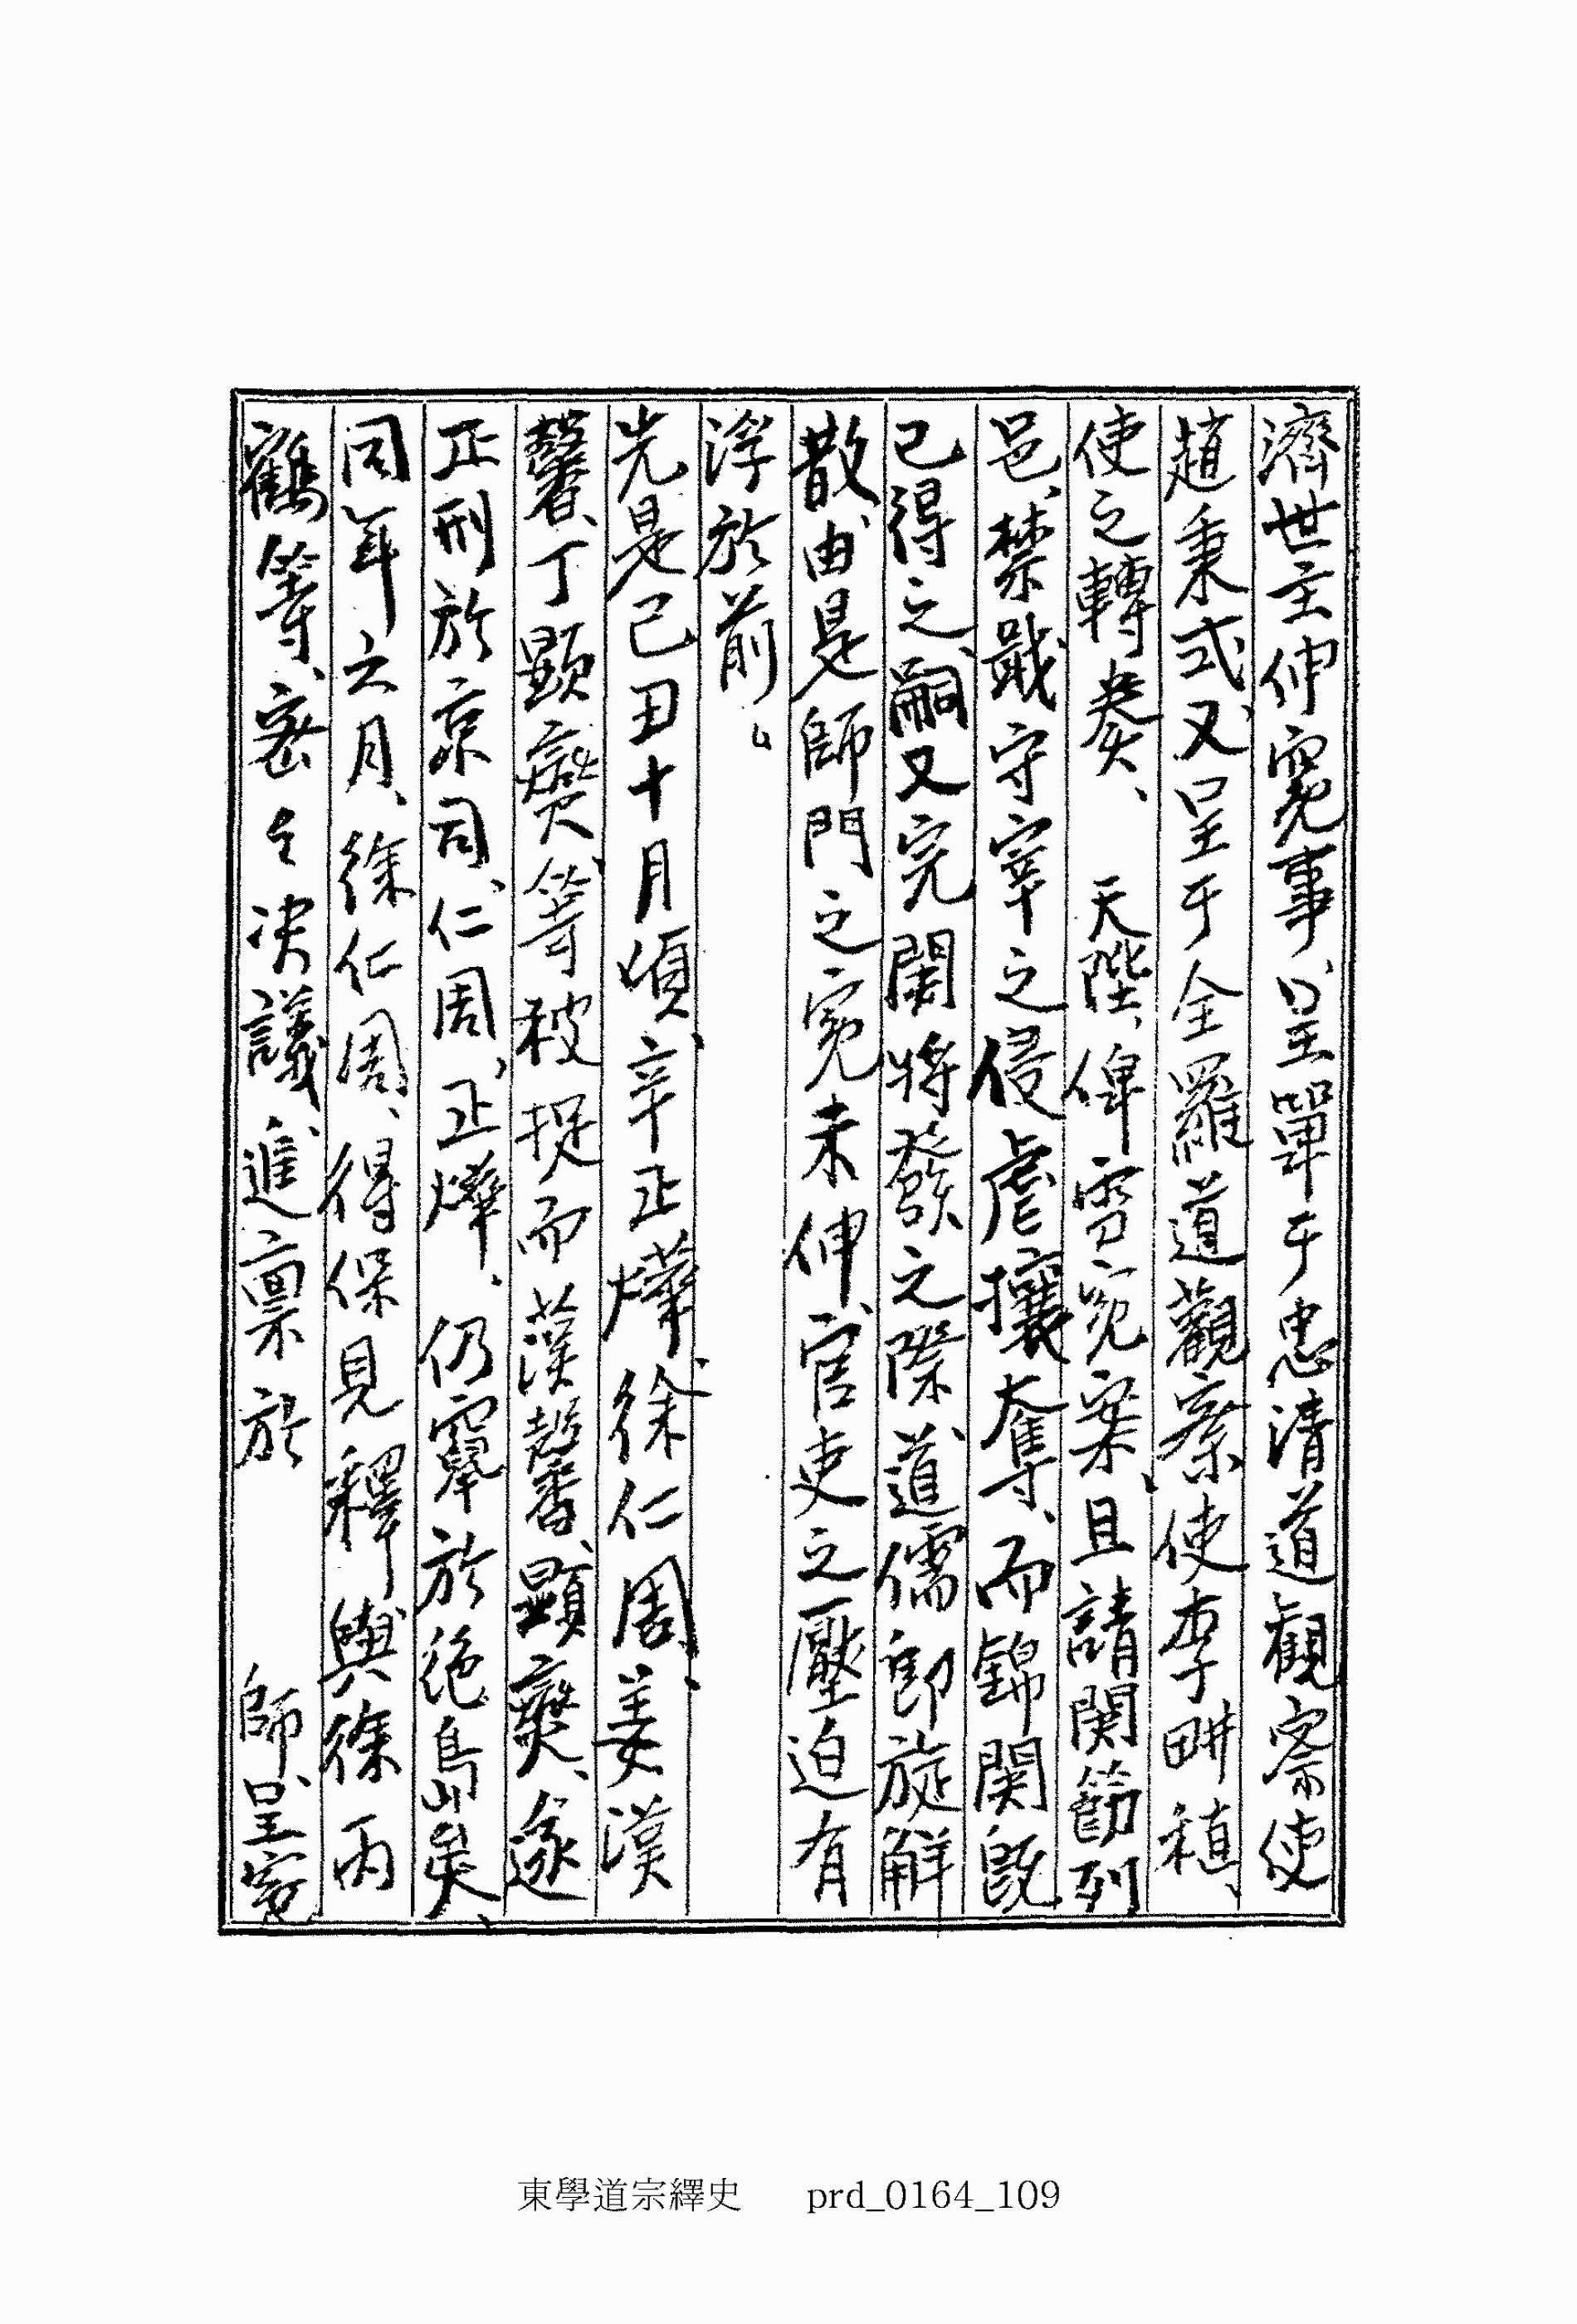 濟世主伸寃事、呈單于忠清道觀察使
趙秉式、又呈于全羅道觀察使李畊稙、
使之轉奏、 天陛、俾雪寃案、且請関節列
邑、禁戢守宰之侵虐攘奪、而錦関旣
已得之、嗣又完関將發之際、道儒卽旋解
散、由是師門之寃未伸、官吏之壓迫有
浮於前。
先是己丑十月頃、辛正燁、徐仁周、姜漢
馨、丁顯奭等、被捉而漢馨、顯奭、遂
正刑於京司、仁周、正燁、仍竄於絶島矣、
同年六月、徐仁周、得保見釋與徐丙
鶴等、密々决議、進禀於 師、呈寃
東學道宗繹史 prd_0164_109